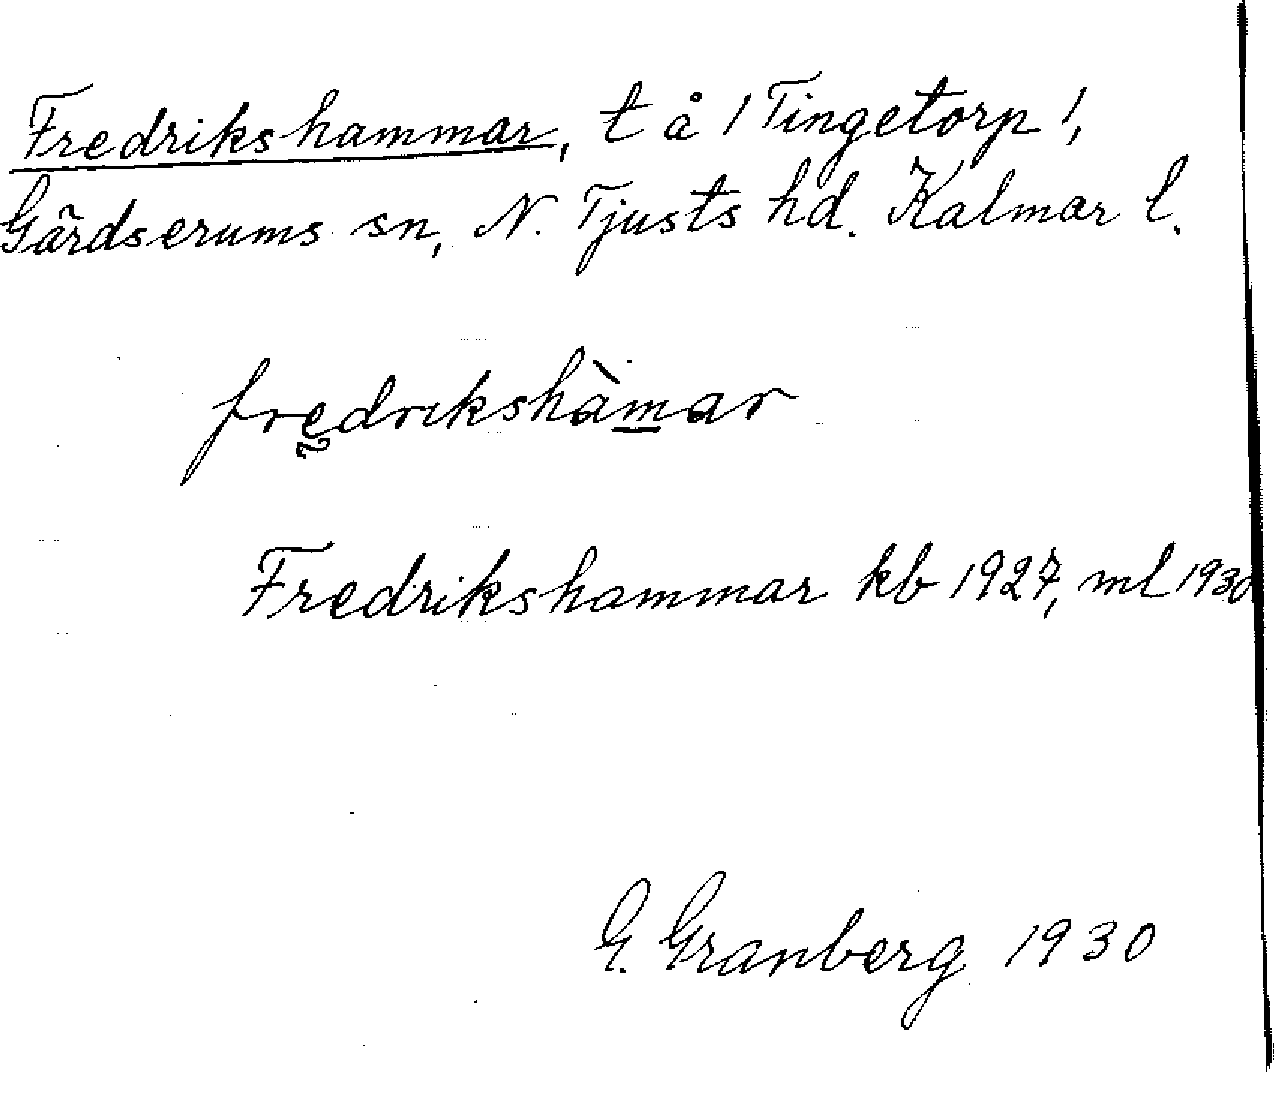 Fredrikshammar, t å / Tingetorp /,
Gärdserums sn, N. Tjusts hd. Kalmar l.
fredrikshàmar
Fredrikshammar kb 1927, ml 1930
G. Granberg 1930